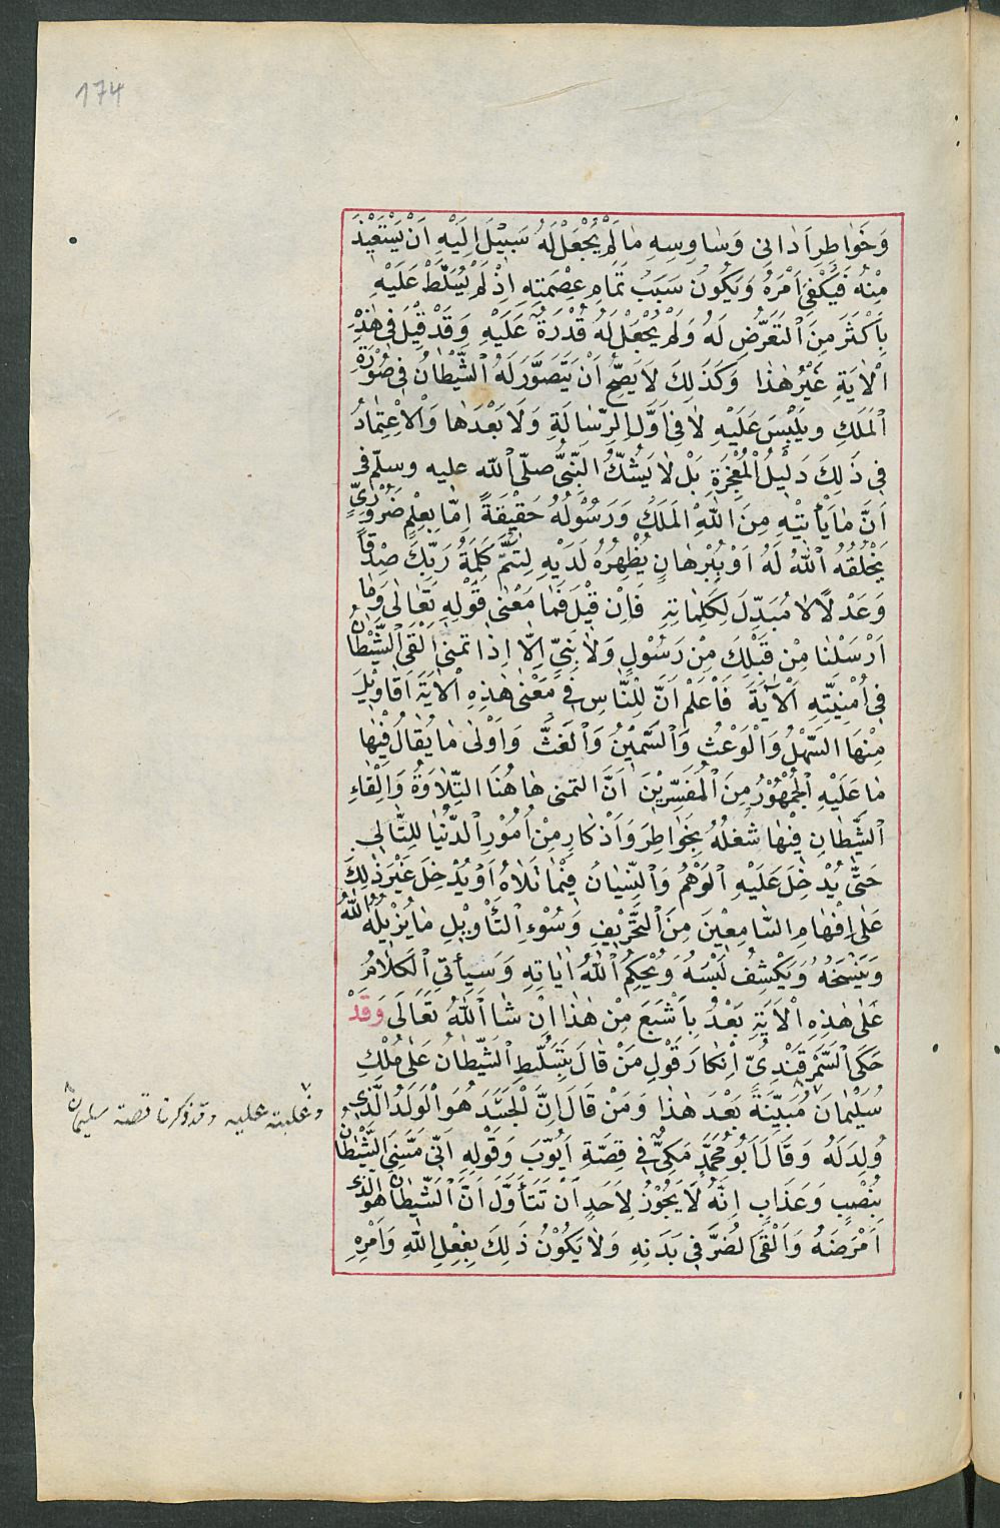 174
وَخَوَاطِرِ اَدَانِى وَسَاوِسِهِ مٰا لَمْ يُجْعَلْ لَهُ سَبِيْلٌ اِلَيْهِ اَنْ يَسْتَعِيْذَ
مِنْهُ فَيُكْفٰى اَمْرَهُ وَيَكُونُ سَبَبُ تَمَامِ عِصْمَتِهِ اِذْ لَمْ يُسَلَّطْ عَلَيْهِ
بِاَكْثَرَ مِنَ التَّعَرُّضِ لَهُ وَلَمْ يُجْعَلْ لَهُ قُدْرَةٌ عَلَيْهِ وَقَدْ قِيْلَ فِى هٰذِهِ
الْاٰيَةِ غَيْرُ هٰذَا وَكَذٰلِكَ لَا يَصِحُّ اَنْ يَتَصَوَّرَ لَهُ الشَّيْطَانُ فِى صُوْرَةِ
الْمَلَكِ وَيَلْبِسَ عَلَيْهِ لَا فِى اَوَّلِ الرِّسَالَةِ وَلَا بَعْدَهَا وَالْاِعْتِمَادُ
فِى ذٰلِكَ دَلِيْلُ الْمُعْجِزَةِ بَلْ لَا يَشُكُّ النَّبِىُّ صلّى الله عليه وسلّم فى
اَنَّ مَا يَأْتِيْهِ مِنَ اللهِ الْمَلَكُ وَرَسُوْلُهُ حَقِيْقَةً اِمَّا بِعِلْمٍ ضَرُوْرِىٍّ
يَخْلُقُهُ اللهُ لَهُ اَوْ بِبُرْهَانٍ يُظْهِرُهُ لَدَيْهِ لِتَتِمَّ كَلِمَةُ رَبِّكَ صِدْقًا
وَعَدْلًا لَا مُبَدِّلَ لِكَلِمَاتِهِ فَاِنْ قِيْلَ فَمَا مَعْنٰى قَوْلِهِ تَعَالٰى وَمَا
اَرْسَلْنَا مِنْ قَبْلِكَ مِنْ رَسُوْلٍ وَلَا نَبِىٍّ اِلَّا اِذَا تمنى اَلْقَى الشَّيْطَانُ
فِى اُمْنِيَّتِهِ الْاٰيَةَ فَاعْلَمْ اَنَّ لِلنَّاسِ فِى مَعْنٰى هٰذِهِ الْاٰيَةِ اَقَاوِيْلَ
مِنْهَا السَّهْلُ وَالْوَعْثُ وَالسَّمِيْنُ وَالْغَثُّ وَاَوْلٰى مَا يُقَالُ فِيْهَا
مَا عَلَيْهِ الْجُمْهُوْرُ مِنَ الْمُفَسِّرِيْنَ اَنَّ التمنى هَاهُنَا التِّلَاوَةُ وَاِلْقَاءِ
الشَّيْطَانِ فِيْهَا شُغْلُهُ بِخَوَاطِرَ وَاَذْكَارٍ مِنْ اُمُوْرِ الدُّنْيَا لِلتَّالِى
حَتّٰى يُدْخِلَ عَلَيْهِ الْوَهْمُ وَالنِّسْيَانُ فِيْمَا تَلَاهُ اَوْ يُدْخِلَ غَيْرَ ذٰلِكَ
عَلٰى اِفْهَامِ السَّامِعِيْنَ مِنَ التَّحْرِيْفِ وَسُوْءِ التَّأْوِيْلِ مَا يُزِيْلُهُ اللهُ
وَيَنْسَخَهُ وَيَكْشِفُ لَبْسَهُ وَيُحْكِمُ اللهُ اٰيَاتِهِ وَسَيَأْتِى الْكَلَامُ
عَلٰى هٰذِهِ الْاٰيَةِ بَعْدُ بِاَشْبَعَ مِنْ هٰذَا اِنْ شَا اللهُ تَعَالٰى وَقَدْ
حَكَى السَّمَرْقَنْدِىّ اِنْكَارَ قَوْلِ مَنْ قَالَ بِتَسَلُّطِ الشَّيْطَانُ عَلٰى مُلْكِ
سُلَيْمَانَ مُبَيِّنَةً بَعْدَ هٰذَا وَمَنْ قَالَ اِنَّ الْجَسَدَ هُوَ الْوَلَدُ الَّذِى
وُلِدَ لَهُ وَقَالَ اَبُو مُحَمَّدٍ مَكِىٌّ فِى قِصَّةِ اَيُّوْبَ وَقَوْلِهِ اَنِّى مَسَّنِىَ الشَّيْطَانُ
بِنُصْبٍ وَعَذَابٍ اِنَّهُ لَا يَجُوْزُ لِاَحَدٍ اَنْ تَتَأَوَّلَ اَنَّ الشَّيْطَانَ هُوَ الَّذِى
اَمْرَضَهُ وَاَلْقَى الضُّرَّ فِى بَدَنِهِ وَلَا يَكُوْنُ ذٰلِكَ بِفِعْلِ اللهِ وَاَمْرِهِ
وغلبته عليه وقد ذكرنا قصة سليمان